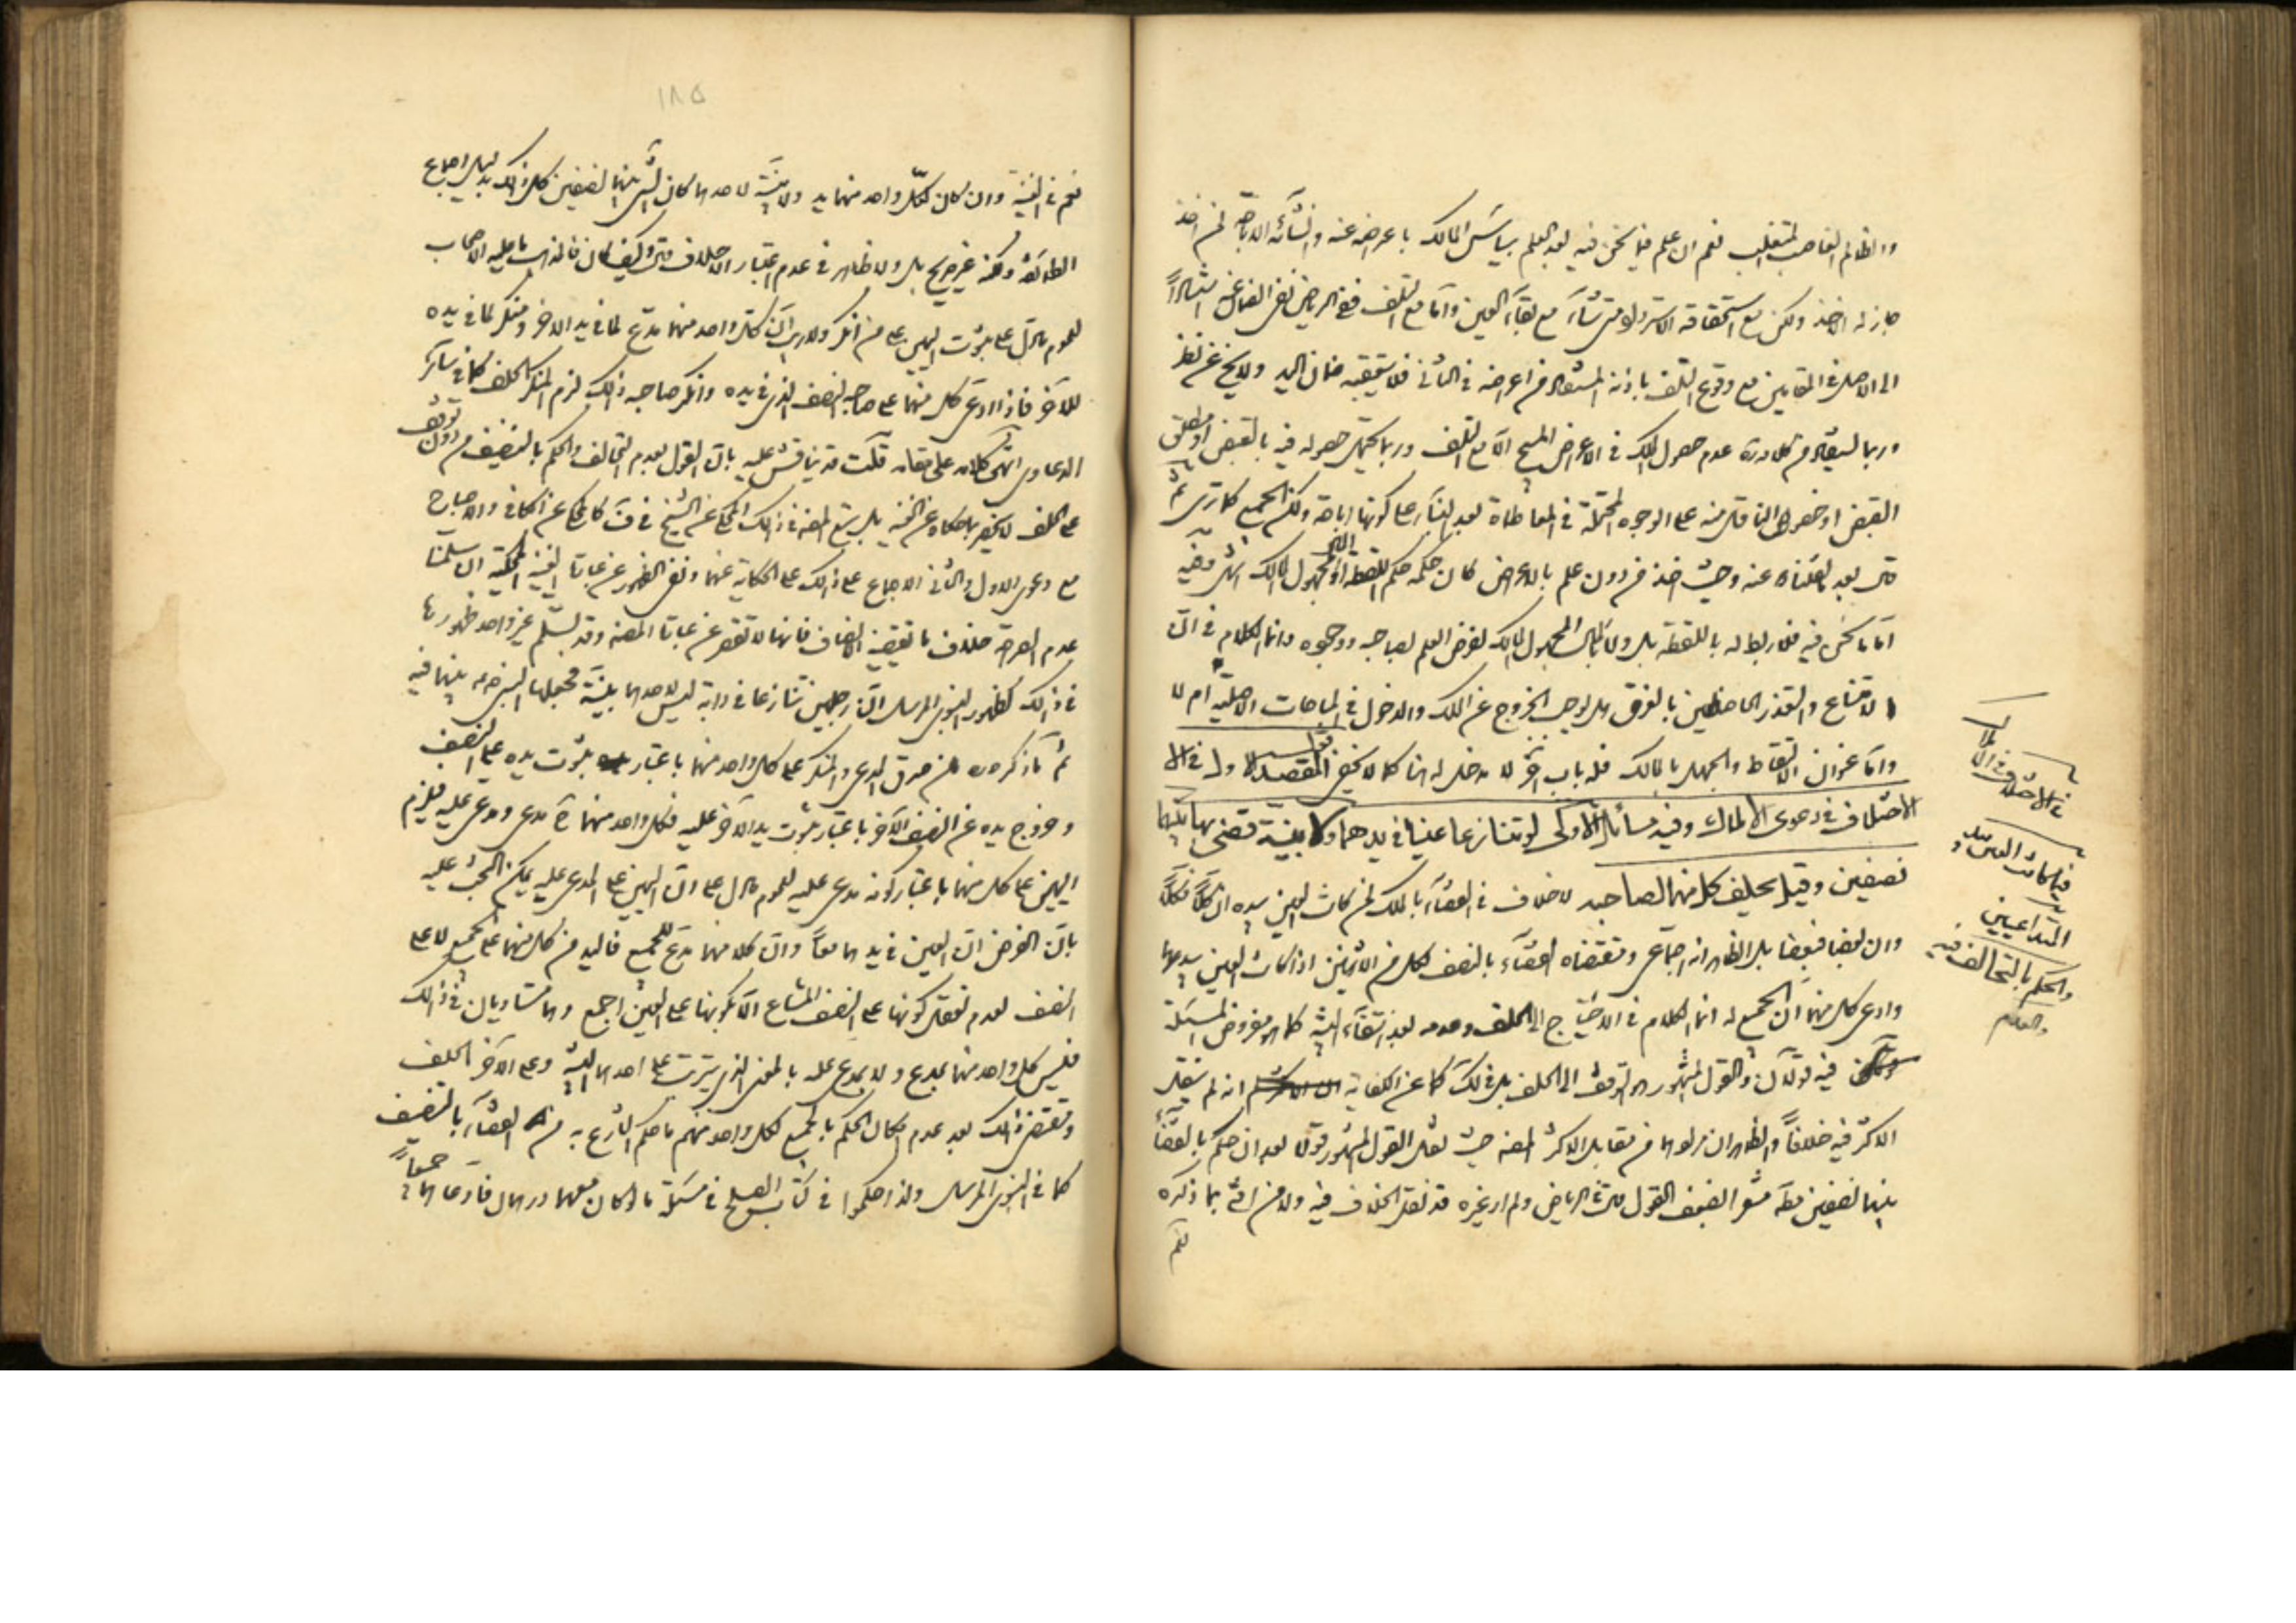 والظالم الغاصب المتغلب نعم ان علم فيما نحن فيه بعد العلم بياس المالك باعراضه عنه وانشائه الاباحة لمن اخذ
جاز له الاخذ ولكن مع استحقاقه الاسترداد متى شاء مع بقاء العين واما مع التلف ففي الرياض نفى الضمان عن
الى الاصل في المقامين مع وقوع التلف باذنه المستفاد من اعراضه في الثاني فلا يتعقبه ضمان اليد ولا يخ عن نظر
وربما يستفاد من كلامه عدم حصول الملك في الاعراض المبيح الا مع التلف وربما يحتمل حصوله فيه بالقبض او مطلق
القبض او خصوص الناقل منه على الوجوه المحتملة في المعاطاة بعد البناء على كونها اباحة ولكن الجميع كما ترى ثم
قال بعد ما نقلناه عنه وحيث اخذ من دون علم بالاعراض كان حكمه حكم اللقطة او المجهول المالك انتهى وفيه
اما ما نحن فيه فلا ربط له باللقطة بل ولا بالمال المجهول المالك لفرض العلم بصاحبه ووجوده وانما الكلام في ان
الامتناع والتعذر الحاصلين بالغرق هل يوجب الخروج عن الملك والدخول في المباحات الاصلية ام لا
واما عنوان الالتقاط والجهل بالمالك فله باب اخر لا مدخل له هنا كما لا يخفى المقصد الاول في
الاختلاف في دعوى الاملاك وفيه مسائل الاولى لو تنازعا عينا في يدهما ولا بينة قضى بها بينهما
نصفين وقيل يحلف كل منهما لصاحبه لا خلاف في القضاء بالملك لمن كانت العين بيده ان كلا فكلا
وان بعضا فبعضا بل الظاهر انه اجماعي ومقتضاه القضاء بالنصف لكل من الاثنين اذا كانت العين بيدهما
وادعى كل منهما ان الجميع له انما الكلام في الاحتياج الى الحلف وعدمه بعد انتفاء البينة كما هو مفروض المسئلة
فيه قولان والقول المشهور هو التوقف الى الحلف بل في لك كما عن الكفاية انه لم ينقل
الاكثر فيه خلافا والظاهر ان مرادهما من مقابل الاكثر المصنف حيث نقل القول المشهور قولا بعد ان حكم بالقضاء
بينهما نصفين فظهر ضعف القول قال في الرياض ولم ار غيره قد نقل الخلاف فيه ولا من افتى بما ذكره
نعم
في الاختلاف في الاملاك
فيما كانت العين بيد
المتداعيين
والحكم بالتحالف فيه
والعدم
١٨٥
نعم في الغنية وان كان لكل واحد منهما يد ولا بينة لاحدهما كان الشئ بينهما نصفين كل ذلك بدليل اجماع
الطائفة ولكنه غير صريح بل ولا ظاهر في عدم اعتبار الاحلاف قال وكيف كان فالمذهب ما عليه الاصحاب
لعموم ما دل على ثبوت اليمين على من انكر ولا ريب ان كل واحد منهما مدع لما في يد الاخر ومنكر لما في يده
للآخر فاذا ادعى كل منهما على صاحبه النصف الذي في يده وانكر صاحبه ذلك لزم المنكر الحلف كما في سائر
الدعاوى انتهى كلامه على مقامه قلت قد يناقش عليه بان القول بعدم التحالف والحكم بالتنصيف من دون توقف
على الحلف لا ينحصر بما حكاه عن الغنية بل يتبع المصنف في ذلك المحكي عن الشيخ في ف كما حكي عن الكافي والاصباح
مع دعوى الاول والثاني الاجماع على ذلك على الحكاية عنهما ونفى الظهور عن عبارة الغنية المحكية ان سلمنا
عدم الصراحة خلاف ما يقتضيه الانصاف فانها لا تقصر عن عبارة المصنف وقد تسلم غير واحد ظهورها
في ذلك كظهور النبوي المرسل ان رجلين تنازعا في دابة ليس لاحدهما بينة فجعلها النبي ص بينهما فيه
ثم ما ذكره من صدق المدعي والمنكر على كل واحد منهما باعتبار ثبوت يده على النصف
وخروج يده عن النصف الآخر باعتبار ثبوت يد الآخر عليه فكل واحد منهما مدعى ومدعى عليه فيلزم
اليمين على كل منهما باعتبار كونه مدعى عليه لعموم ما دل على ان اليمين على المدعى عليه يمكن البحث عليه
بان الفرض ان العين في يدهما معا وان كلا منهما مدع للجميع فاليد من كل منهما على الجميع لا على
النصف لعدم تعقل كونها على النصف المشاع الا بكونها على العين اجمع وهما متساويان في ذلك
فليس كل واحد منهما بمدع ولا بمدعى عليه بالمعنى الذي يترتب على احدهما البينة وعلى الآخر الحلف
ومقتضى ذلك بعد عدم امكان الحكم بالجميع لكل واحد منهم ما حكم الشارع به من القضاء بالنصف
كما في النبوي المرسل ولذا حكموا في كتاب الصلح في مسئلة ما لو كان معهما درهمان فادعاهما